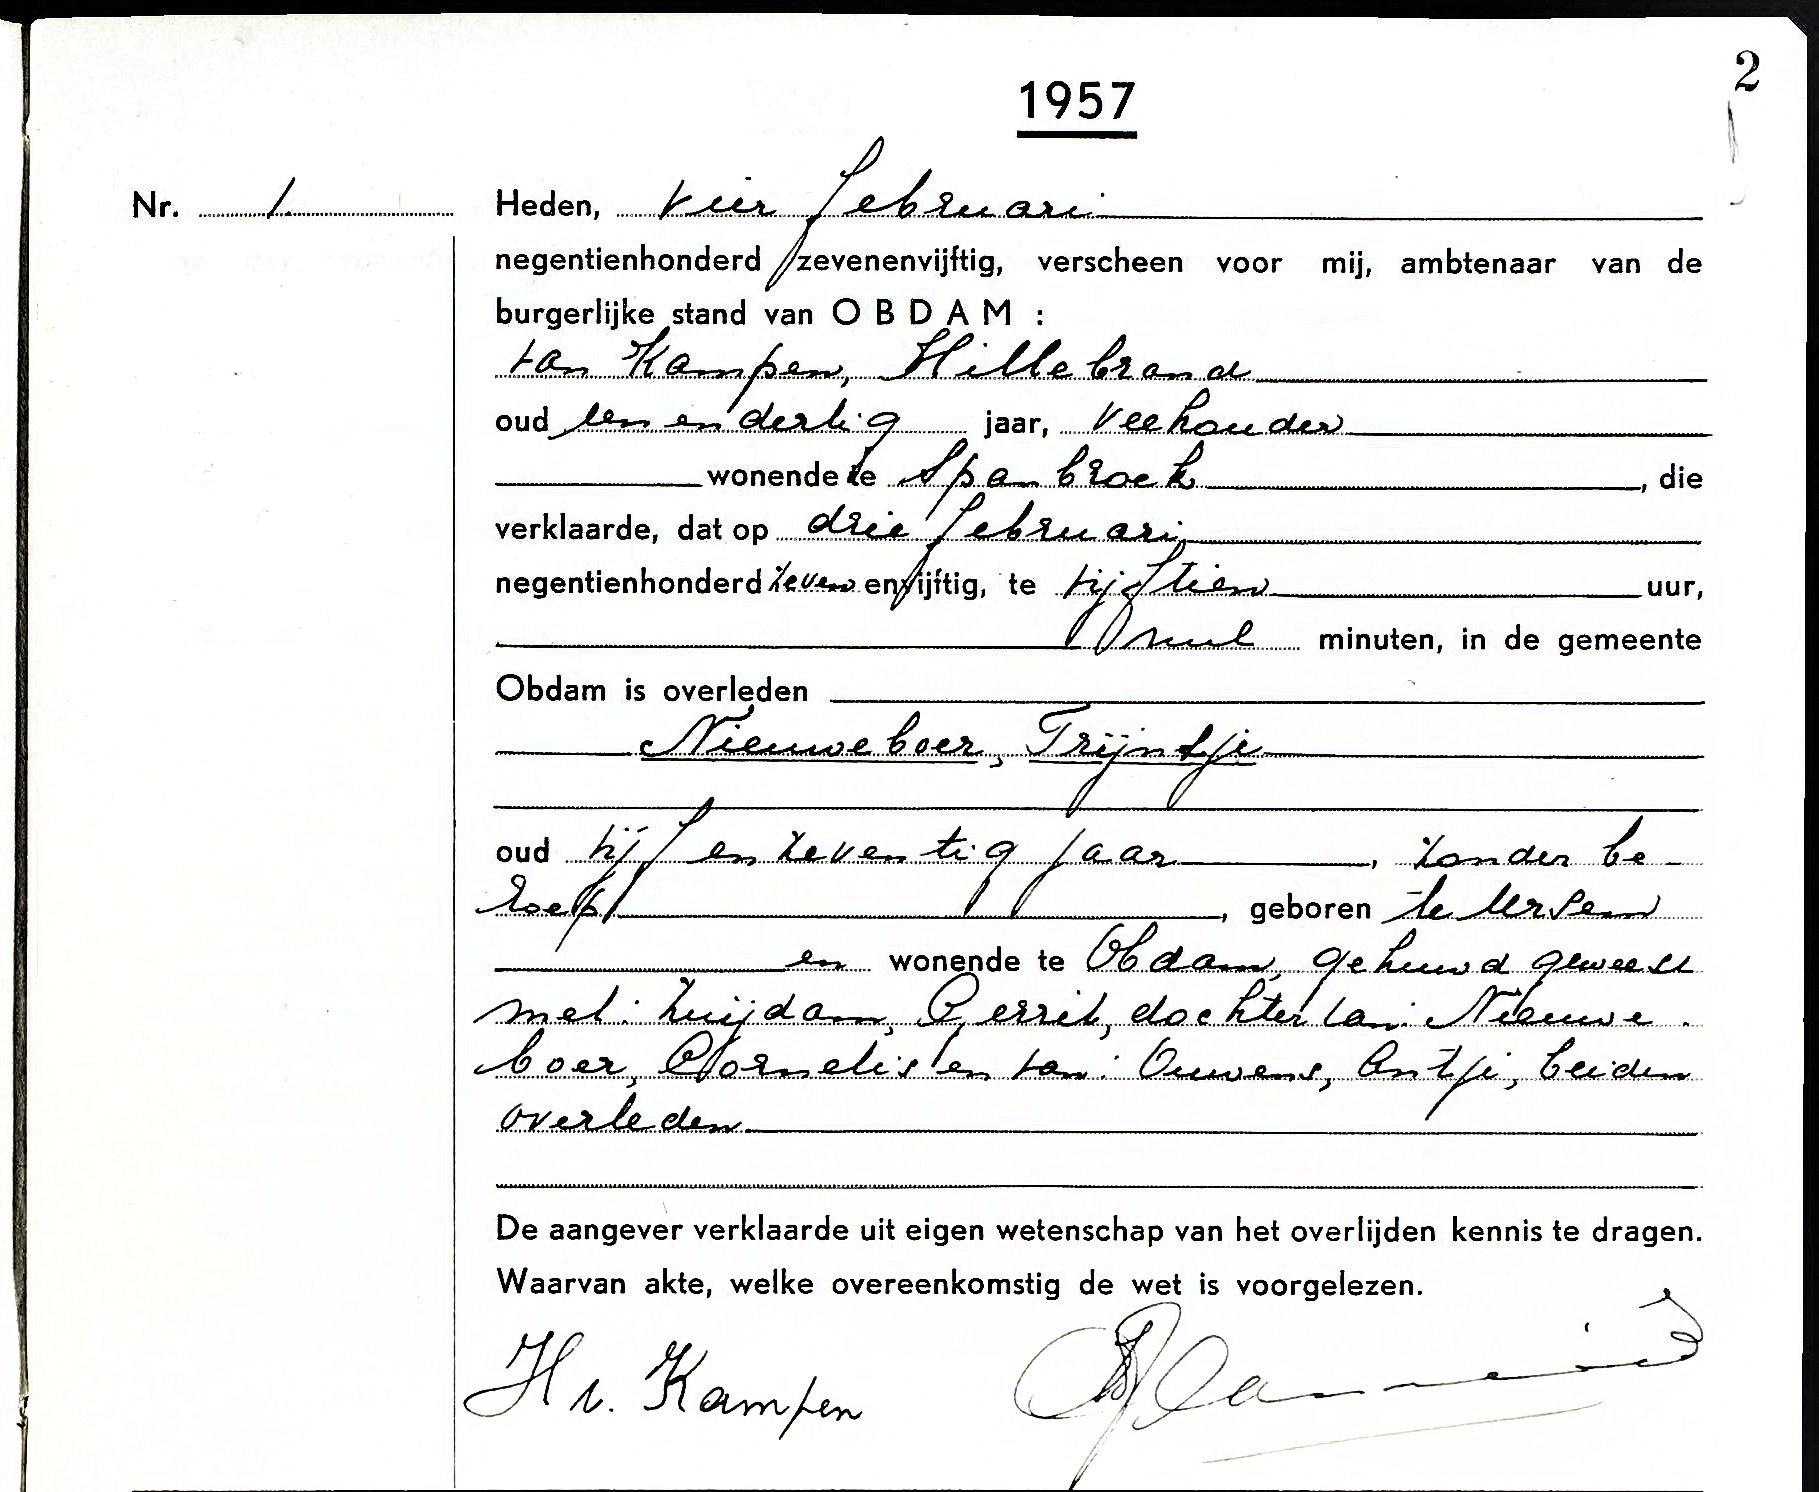 2
1957
Nr. 1.
Heden, vier februari
negentienhonderd zevenenvijftig, verscheen voor mij, ambtenaar van de
burgerlijke stand van OBDAM :
van Kampen, Hillebrand
oud een en dertig jaar, veehouder
wonende te Spanbroek, die
verklaarde, dat op drie februari
negentienhonderd zeven en vijftig, te vijftien uur,
nul minuten, in de gemeente
Obdam is overleden
Nieuweboer, Trijntje
oud vijf en zeventig jaar, zonder be-
roep, geboren te Ursem
en wonende te Obdam, gehuwd geweest
met: Zuijdam, Gerrit, dochter van: Nieuwe-
boer, Cornelis en van: Ouwens, Antje, beiden
overleden
De aangever verklaarde uit eigen wetenschap van het overlijden kennis te dragen.
Waarvan akte, welke overeenkomstig de wet is voorgelezen.
H v. Kampen